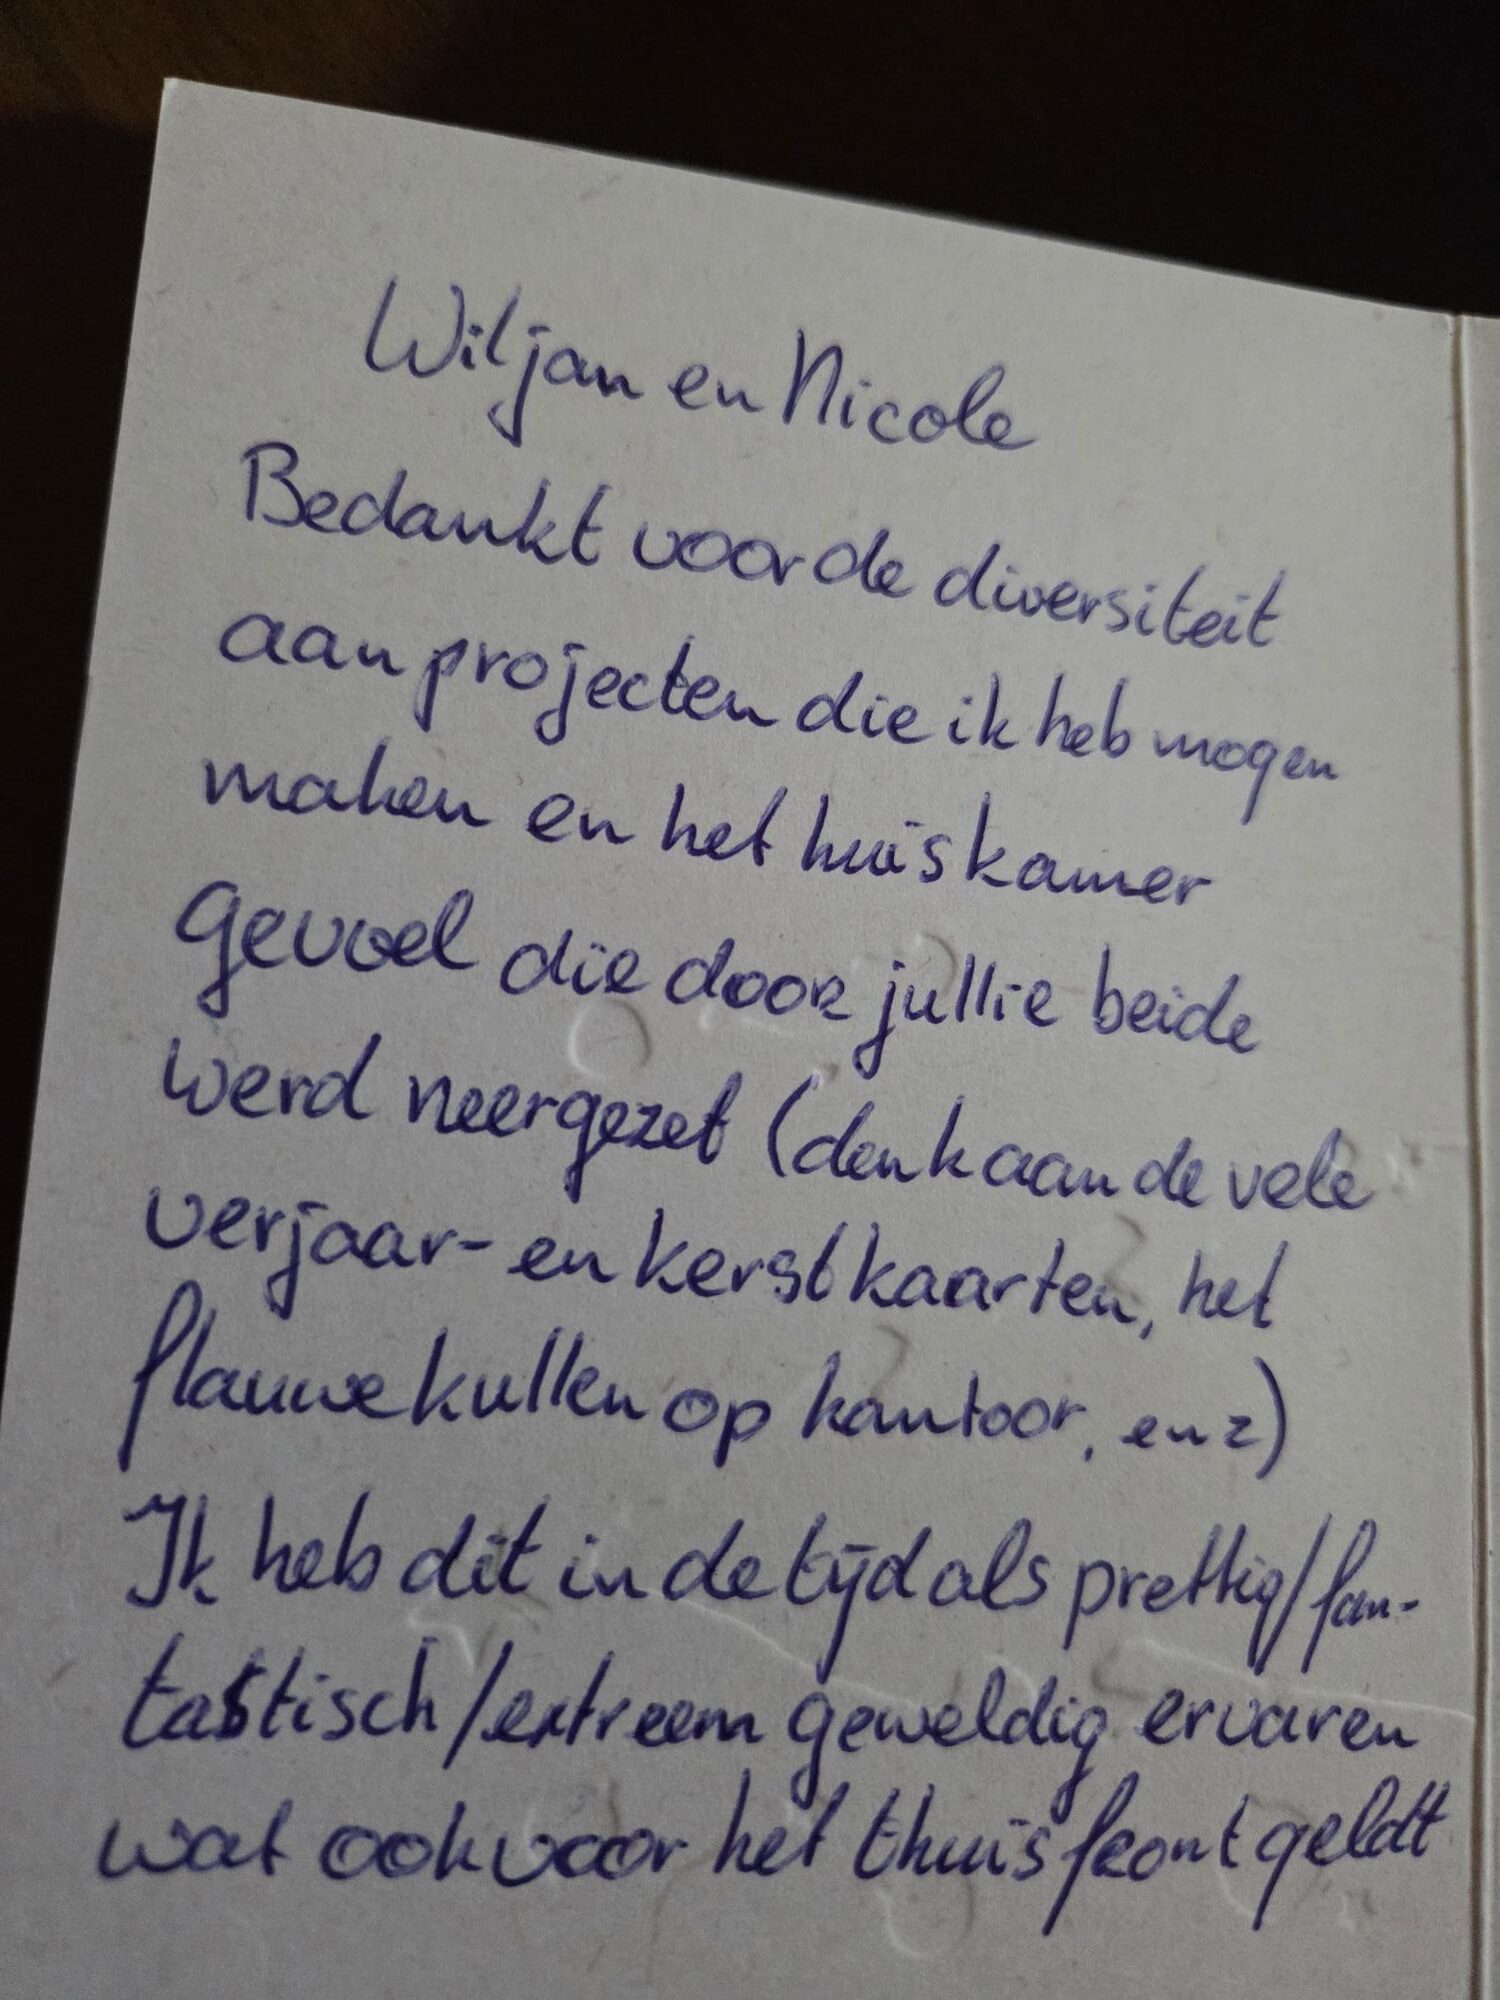 Wiljan en Nicole
Bedankt voor de diversiteit
aan projecten die ik heb mogen
maken en het huiskamer
gevoel die door jullie beide
werd neergezet (denk aan de vele
verjaar- en kerstkaarten, het
flauwekullen op kantoor, enz)
Ik heb dit in de tijd als prettig/fan-
tastisch/extreem geweldig ervaren
wat ook voor het thuisfront geldt